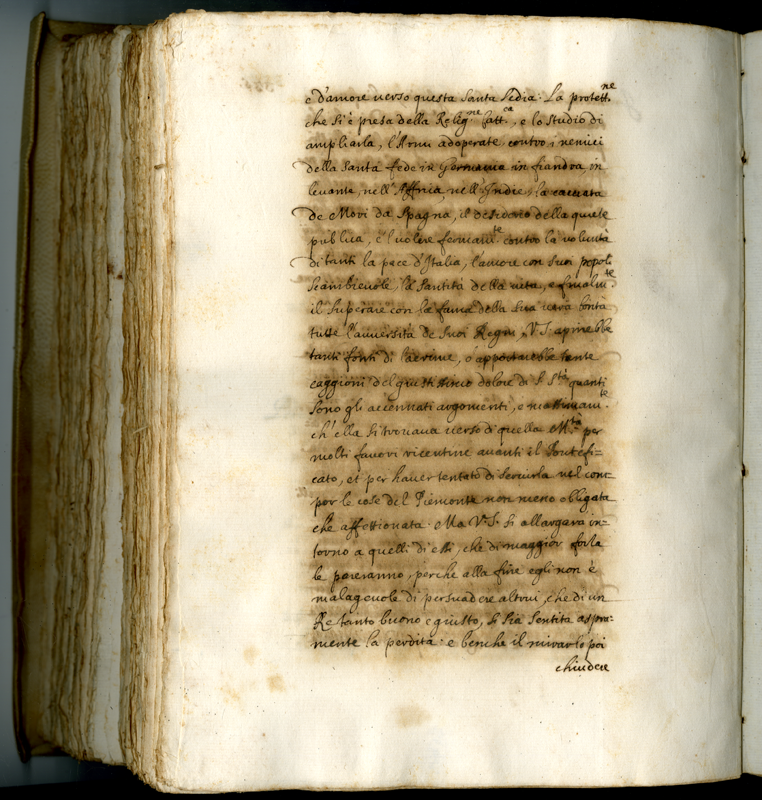 e d'amore verso questa Santa Sedia. La protett.ne
che si è presa della Relig.ne Catt.ca, e lo studio di
ampliarla, l'Armi adoperate contro i nemici
della Santa fede in Germania in fiandra in
levante, nell'Affrica, nell'Indie, la cacciata
de Mori da Spagna, il desiderio della quiete
publica, e 'l volere fermam.te contro la volontà
di tanti la pace d'Italia, l'amore con suoi popoli
scambievole, la santità della vita, e finalm.te
il superare con la fama della sua vera bontà
tutte l'auversità de suoi Regni, V.S. aprirebbe
tanti fonti di lacrime, o apportarebbe tante
caggioni del giustissimo dolore di S. S.tà quanti
sono gli accennati argomenti, e massimam.te
ch'ella si trovava verso di quella M.tà per
molti favori ricevuti ne avanti il Pontefi-
cato, et per haver tentato di servirla nel com-
por le cose del Piemonte non meno obligata
che affettionata. Ma V.S. si allargarà in-
torno a quelli di essi, che di maggior forza
le pareranno, perche alla fine egli non è
malagevole di persuadere altrui, che di un
Re tanto buono e giusto, si sia sentita aspra-
mente la perdita: e benche il mirarlo poi
chiudere